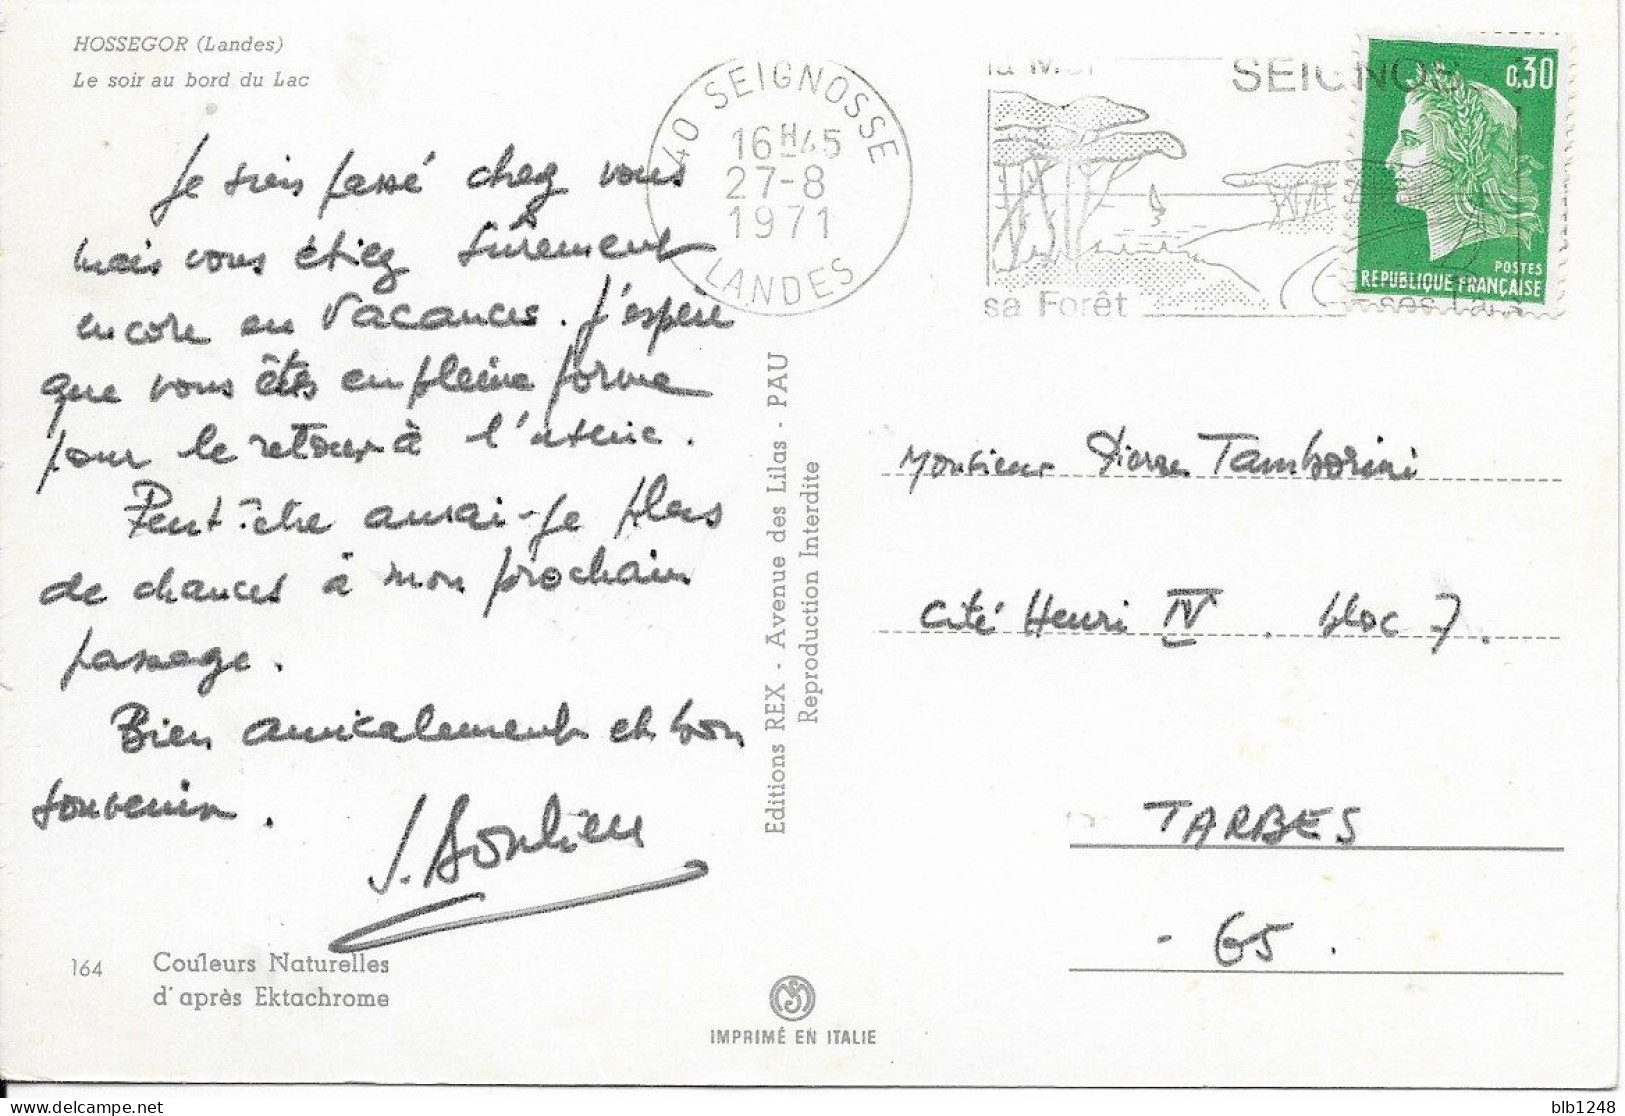 HOSSEGOR (Landes)
Le soir au bord du Lac
40 SEIGNOSSE
16H45
27-8
1971
LANDES
la Mer
SEIGNO
sa Forêt
ses
0,30
POSTES
REPUBLIQUE FRANÇAISE
Je suis passé chez vous
mais vous étiez sûrement
encore en vacances. J'espère
que vous êtes en pleine forme
pour le retour à l'usine.
Peut-être aurai-je plus
de chances à mon prochain
passage.
Bien amicalement et bon
souvenir.
Editions REX - Avenue des Lilas - PAU
Reproduction Interdite
Monsieur Pierre Tamborini
Cité Henri IV . bloc 7.
TARBES
- 65 .
164
Couleurs Naturelles
d'après Ektachrome
IMPRIMÉ EN ITALIE
delcampe.net
blb1248